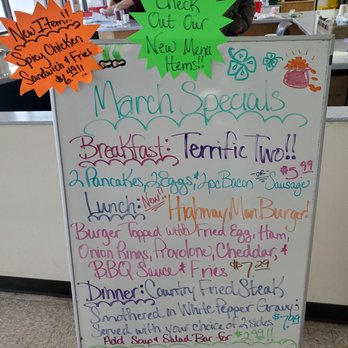 New Item!!
Spicy Chicken
Sandwich & Fries
Check
Out Our
New Menu
Items!!
March Specials
Breakfast: Terrific Two!!
$5.99
2 Pancakes, 2 Eggs, & 2pc Bacon -or- Sausage
Lunch: New!! Highway Man Burger!
Burger Topped with Fried Egg, Ham,
Onion Rings, Provolone, Cheddar, &
BBQ Sauce & Fries $7.29
Dinner: Country Fried Steak
Smothered in White Pepper Gravy:
Served with your choice of 2 sides $7.99
Add Soup & Salad Bar for $2.99!!